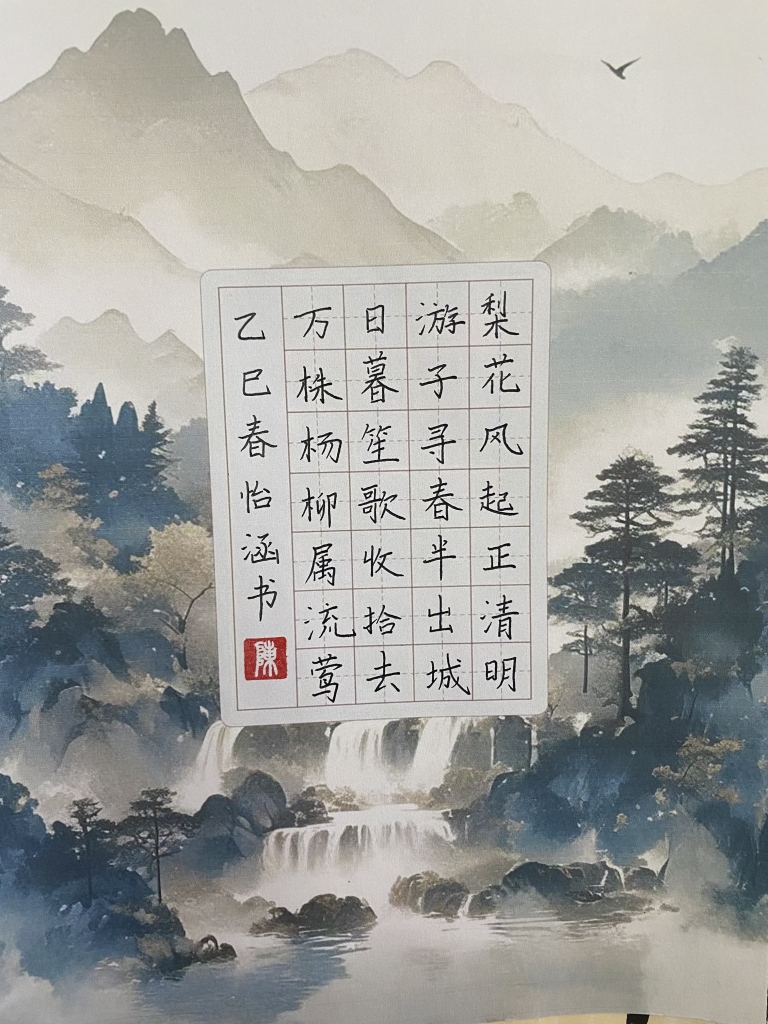 梨花风起正清明
游子寻春半出城
日暮笙歌收拾去
万株杨柳属流莺
乙巳春怡涵书
陳